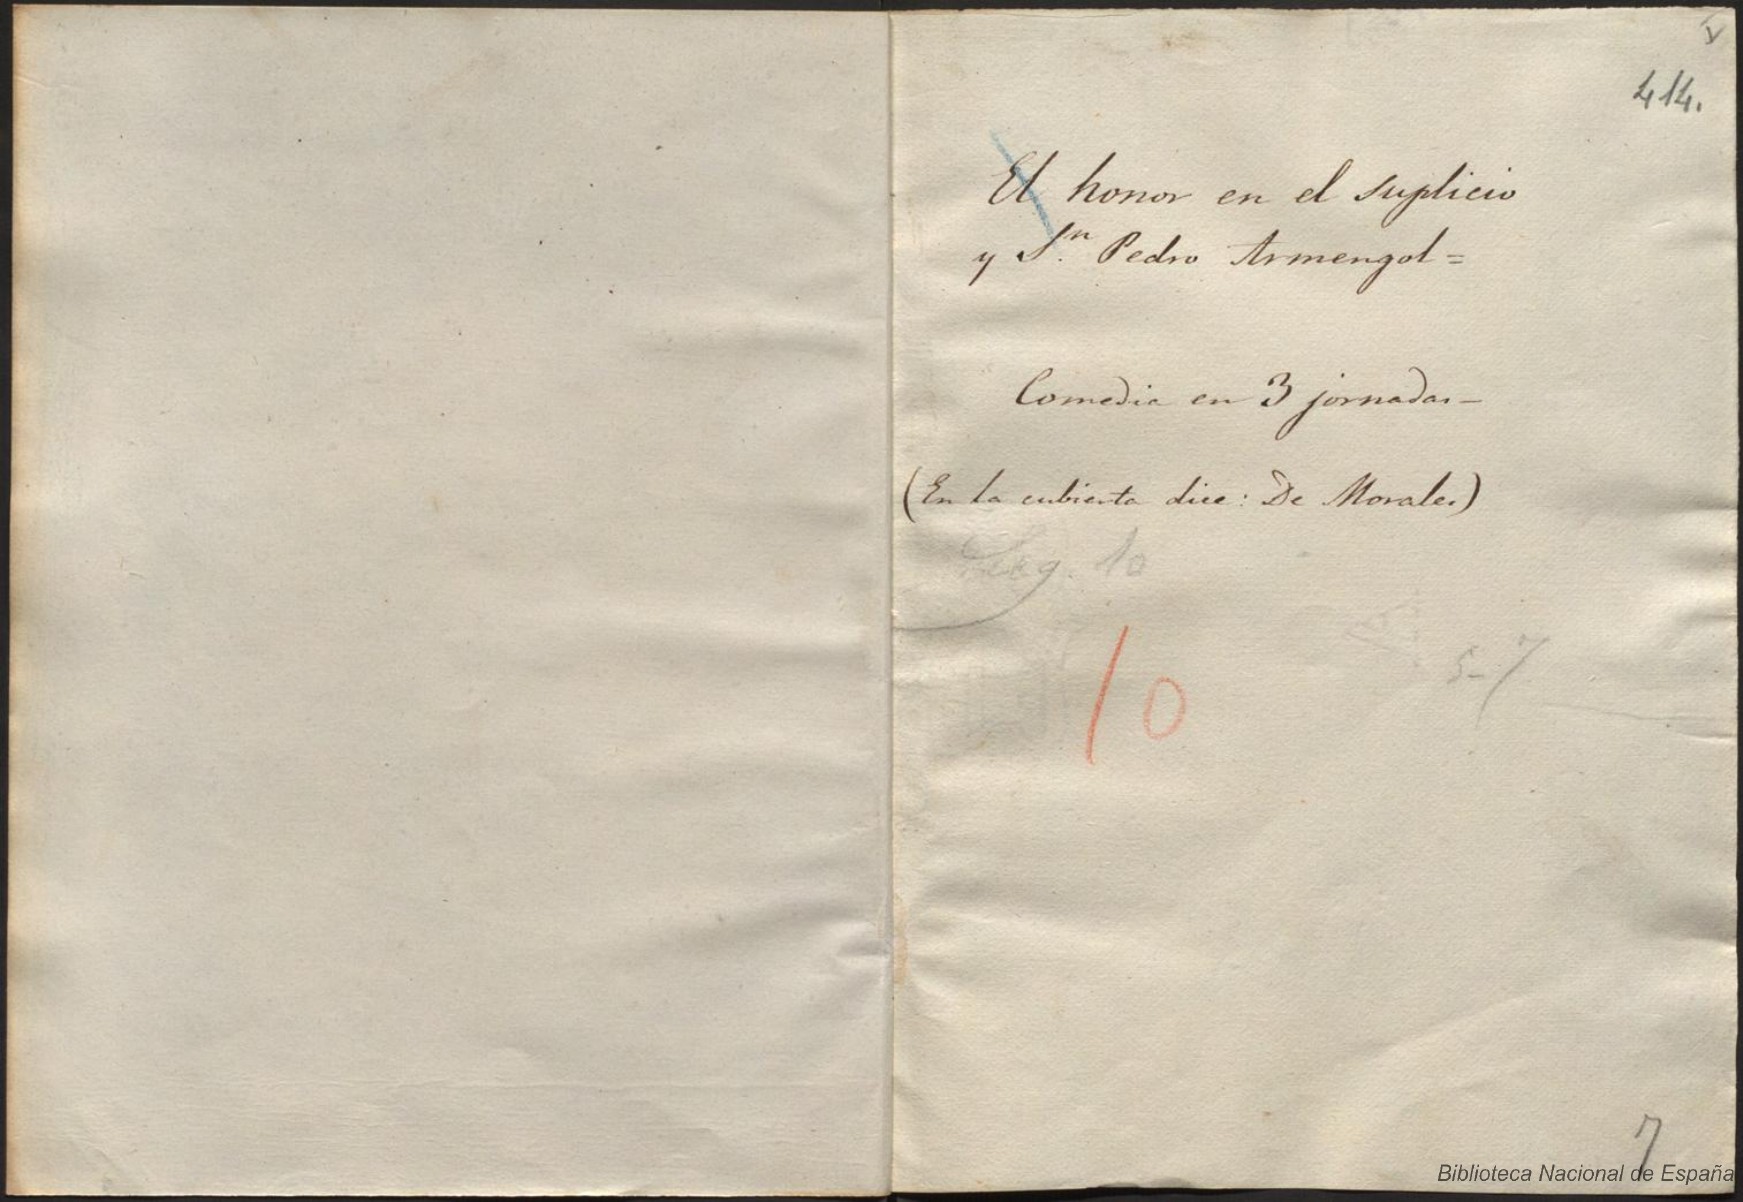 V
414.
El honor en el suplicio
y Sn. Pedro Armengol =
Comedia en 3 jornadas —
(En la cubierta dice: De Morales)
Leg. 10
10
5-7
7
Biblioteca Nacional de España